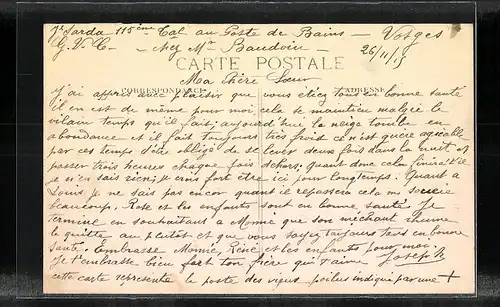 Je Sarda 115ème Cal au Poste de Bains - Vosges
G.V.C. - chez Mr Baudoin - 26/11/15
CARTE POSTALE
Ma Chère Sœur
CORRESPONDANCE ADRESSE
J'ai appris avec plaisir que vous étiez tous en bonne santé
il en est de même pour moi, cela se maintien malgré le
vilain temps qu'il fait; aujourd'hui la neige tombe en
abondance et il fait toujours très froid ce n'est guère agréable
par ces temps d'être obligé de se lever deux fois dans la nuit et
passer trois heures chaque fois dehors; quant donc cela finira t'il
je n'en sais rien; je crois fort être ici pour longtemps. Quant a
Louis je ne sais pas encor quant il repassera cela me soucie
beaucoup. Rose et les enfants sont en bonne santé. Je
termine en souhaitant a Mémé que son méchant rhume
le quitte au plutôt et que vous soyez toujours tous en bonne
santé. Embrasse Mémé, René et les enfants pour moi.
Je t'embrasse bien fort ton frère qui t'aime Joseph
cette carte représente le poste des vieux poilus indiqué par une +